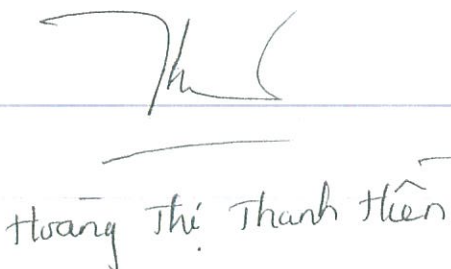 Hoàng Thị Thanh Hiền